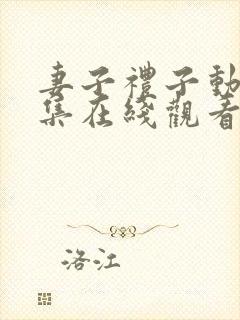 妻子禮子動
集在綫觀看
洛江